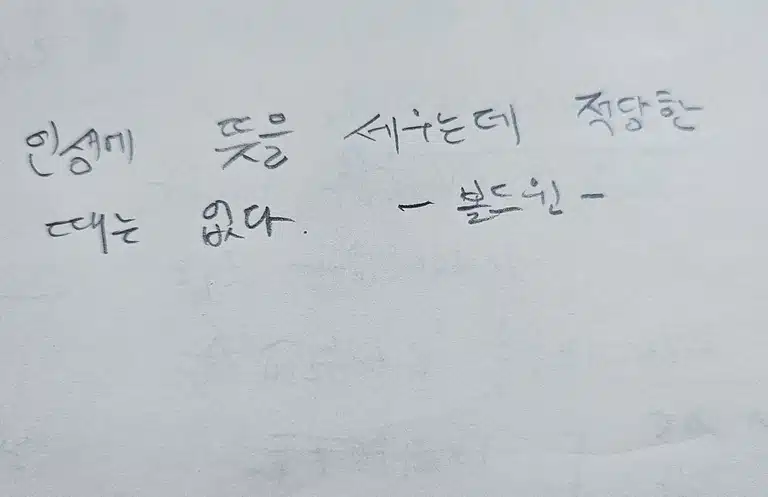 인생에 뜻을 세우는데 적당한
때는 없다. - 볼드윈 -